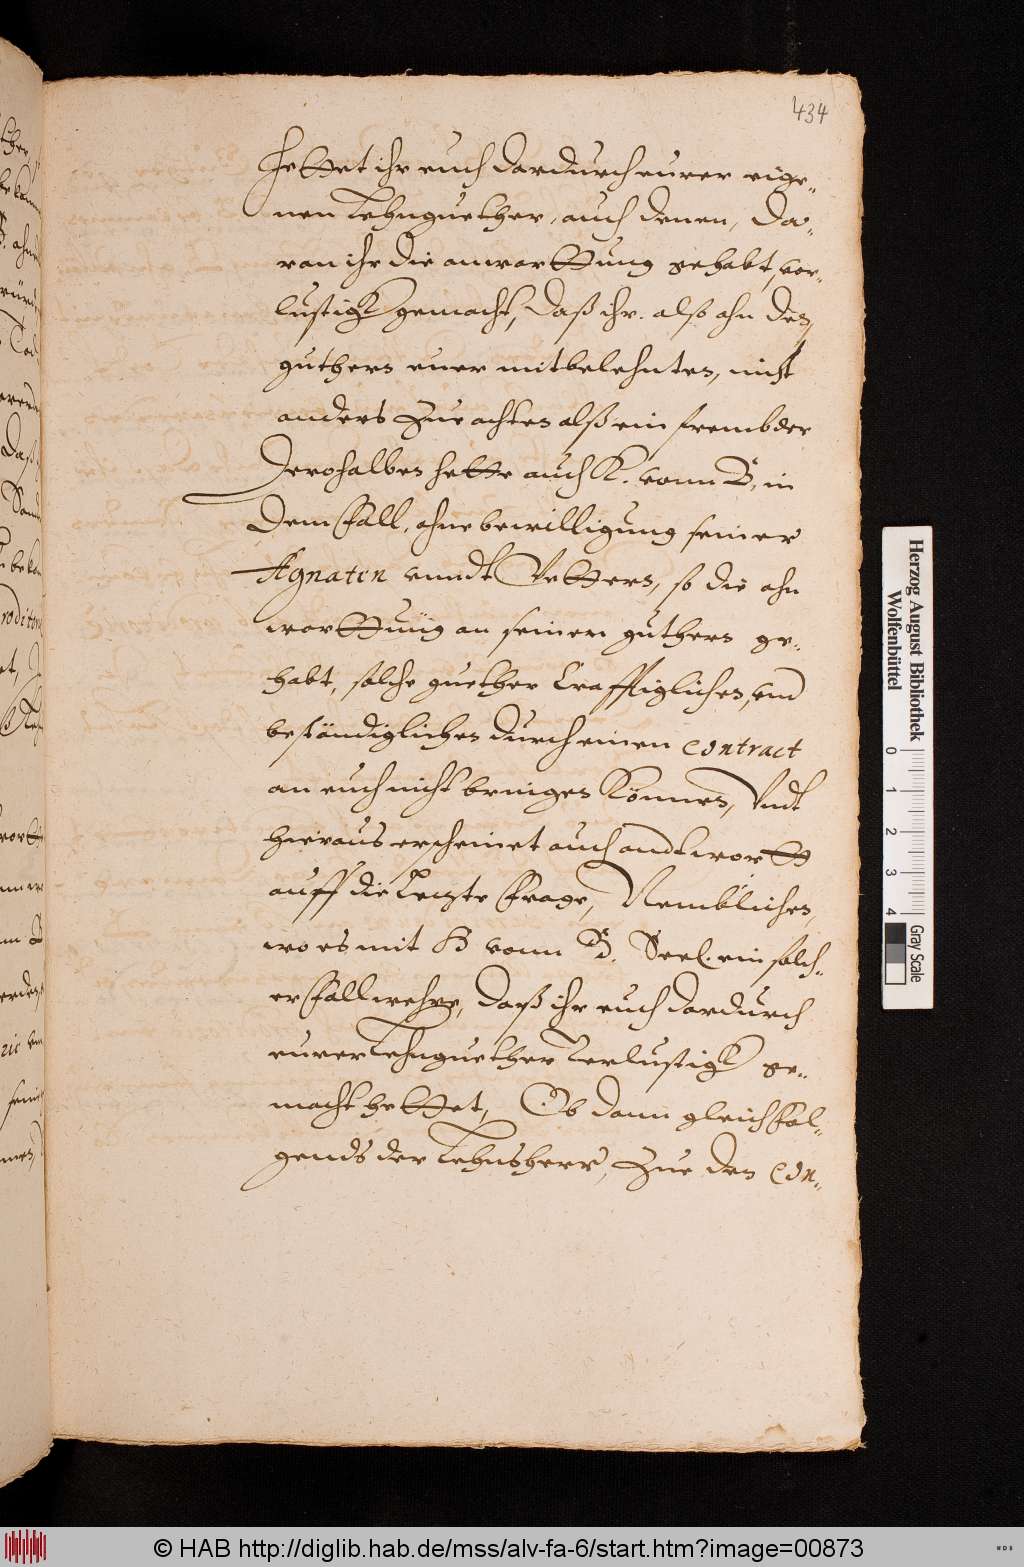 434
hettet ihr euch dardurch eurer eige-
nen Lehnguether, auch denen, da-
ran ihr die anwarttung gehabt, vor-
lustigk gemacht, daß ihr also ahn des
guthers euer mitbelehnten, nicht
anders zue achten alß ein frembder
Derohalben hette auch K. vonn B. in
dem fall, ohne bewilligung seiner
Agnaten vnndt Vettern, so die ahn
warttung an seinen guthern ge-
habt, solche guether Craffliglichen, vnd
bestendiglichen durch einen contract
an euch nicht bringen können, Vndt
hieraus erscheinet auch andtwortt
auff die Letzte frage, Nemblichen,
wo es mit H vonn B. Seel. ein solch-
er fall wehre, daß ihr euch dardurch
eurer Lehnguether Verlustigk ge-
macht hettet, Ob dann gleich fol-
gends der Lehnsherr, zue den Con-
Herzog August Bibliothek
Wolfenbüttel
0 1 2 3 4
Gray Scale
© HAB http://diglib.hab.de/mss/alv-fa-6/start.htm?image=00873